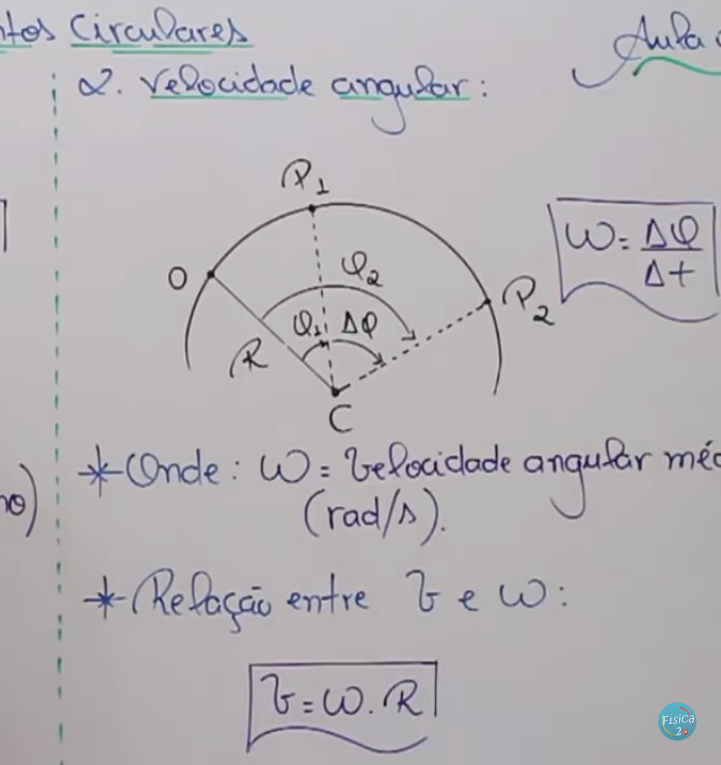 Circulares
Aula
2. Velocidade angular:
P₁
O
φ₂
φ₁ Δφ
P₂
R
C
ω = Δφ
Δt
* Onde: ω = Velocidade angular
(rad/s).
* Relação entre v e ω:
v = ω . R
Física
2